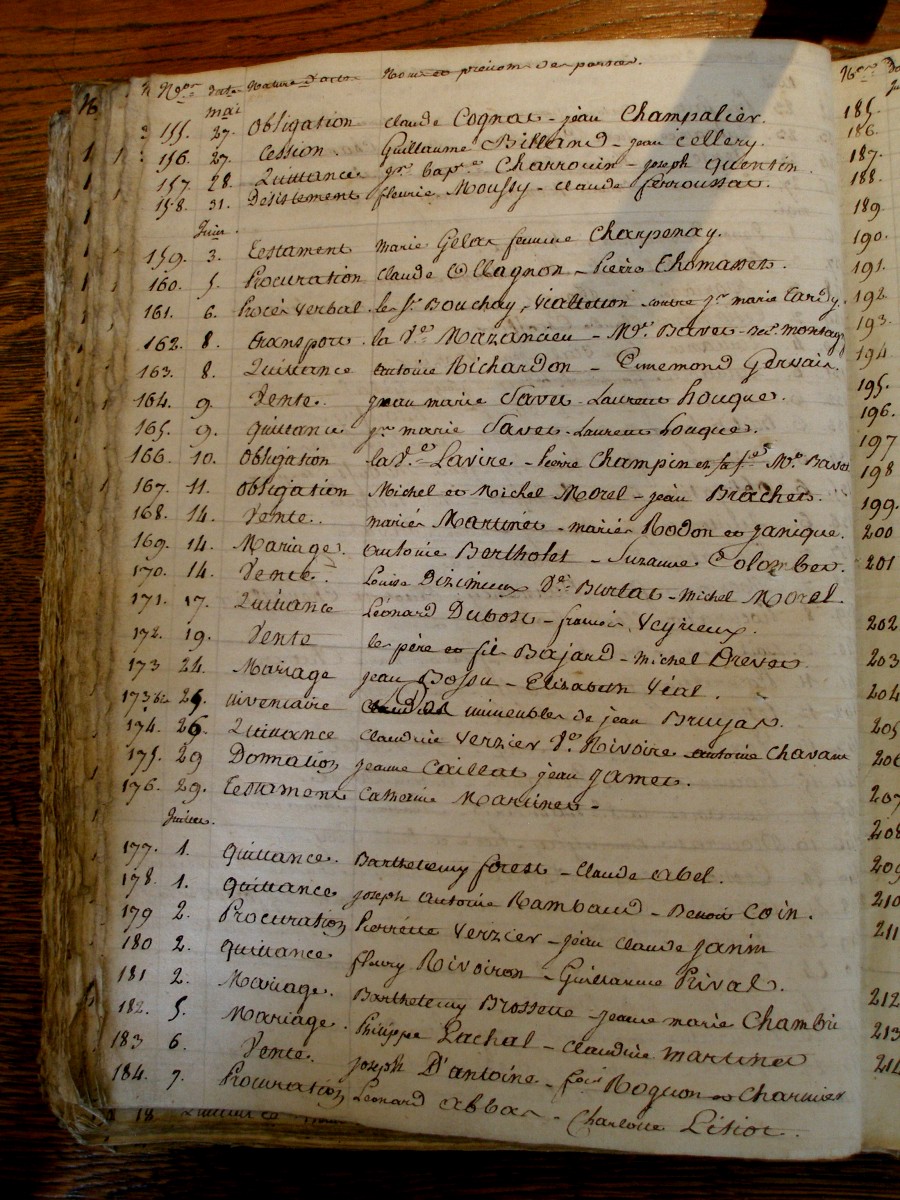 N.os date Nature d'acte Nom et prénom des parties.
mai
155. 27. Obligation claude Cognat - jean Champalier.
156. 27. Cession. Guillaume Billiand - jean cellery.
157. 28. Quittance jn. bapt.e Charrouin - joseph quentin
158. 31. Désistement fleurie Moussy - claude ferroussat.
Juin.
159. 3. testament marie Gelas femme Charpenay.
160. 5. Procuration claude Collagnon - Pierre Thomasset.
161. 6. Procés verbal. le Sr. Bouchay, contre jn. marie tardy.
162. 8. transport. la Ve. Mazancieu - Mr. Bavet
163. 8. Quittance antoine Richardon - Gervais.
164. 9. Vente. jean marie Savet - Laurent houque.
165. 9. quittance jn. marie Savet - Laurent houque.
166. 10. Obligation la Ve. Lavire - Pierre Champin et Mr. Bavet
167. 11. Obligation Michel et Michel Morel - jean Brachet.
168. 14. Vente. mariés Martinet - mariés Rodon et janique.
169. 14. Mariage. antoine Bertholet - Suzanne Colombet.
170. 14. Vente. Louise Dizimieux Ve. Burlat - Michel Morel
171. 17. Quittance Léonard Dubost - francois Veyrieux.
172. 19. Vente le père et fils Bajard - michel Drevet
173 24. Mariage jean Bossu - Elizabeth Véal.
173 bis 26. inventaire immeubles de jean Bruyas.
174. 26. Quittance Claudine Verzier Ve. Rivoire antoine Chavant
175. 29 Donnation jeanne Caillat jean jamet.
176. 29. Testament Catherine Martinet -
Juillet.
177. 1. quittance. Barthelemy forest - Claude abel.
178. 1. quittance joseph antoine Rambaud - Benoit Coin.
179 2. Procuration Pierrette Verzier - jean claude janin
180 2. quittance fleury Rivoiron - Guillaume Rival.
181 2. Mariage. Barthelemy Brossette - jeanne marie Chambie
182. 5. Mariage. Philippe Lachal - claudine martinet
183 6. Vente. joseph D'antoine - fois. Roquon et Charmier
184. 7. Procuration Léonard abbas - Charlotte Lisiot.
N.os
185.
186.
187.
188.
189.
190.
191.
192.
193.
194
195.
196.
197
198
199.
200
201
202
203
204
205
206
207
208
209
210
211
212
213
214